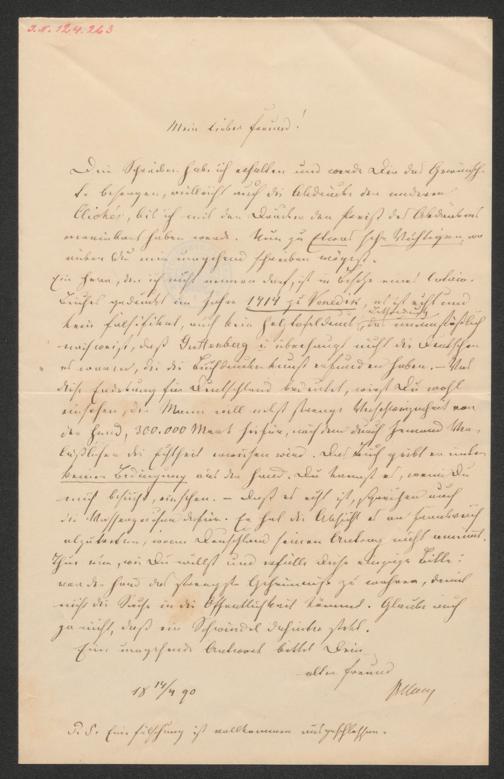 I.N. 124.263
Mein lieber Freund!
Dein Schreiben habe ich erhalten und werde Dir das Gewünsch-
te besorgen, vielleicht auch die Abdrucke der anderen
Clichés, bis ich mit den Drucker den Preis des Abdruckes
vereinbart haben werde. Nun zu Etwas sehr Wichtigem, wo
rüber Du mir umgehend schreiben mögest.
Ein Herr, den ich nicht nennen darf, ist im Besitze eines latein.
Buches gedruckt im Jahre 1414 zu Venedig, es ist echt und
kein Falsifikat, auch kein Holztafeldruck, das unumstößlich
nachweist, daß Guttenberg u. überhaupt nicht die Deutschen
es waren, die die Buchdruckerkunst erfunden haben. – Was
diese Entdeckung für Deutschland bedeutet, wirst Du wohl
einsehen, der Mann will nebst strenge Verschwiegenheit von
der Hand, 300.000 Mark hiefür, nachdem durch Jemand Ver-
läßlichen die Echtheit erwiesen wird. Das Buch gibt er unter
keiner Bedingung aus der Hand. Du kannst es, wenn Du
mich besuchst, einsehen. – Daß es echt ist, sprechen auch
die Wasserzeichen dafür. Er hat die Absicht es an Frankreich
abzutreten, wenn Deutschland seinen Antrag nicht annimmt.
Thue nun, was Du willst und erfülle diese einzige Bitte:
vor der Hand das strengste Geheimniss zu wahren, damit
nicht die Sache in die Öffentlichkeit kommt. Glaube auch
ja nicht, daß ein Schwindel dahinter steckt.
Eine umgehende Antwort bittet Dein
alter Freund
18 14/4 90
P.S. Eine Fälschung ist vollkommen ausgeschlossen.